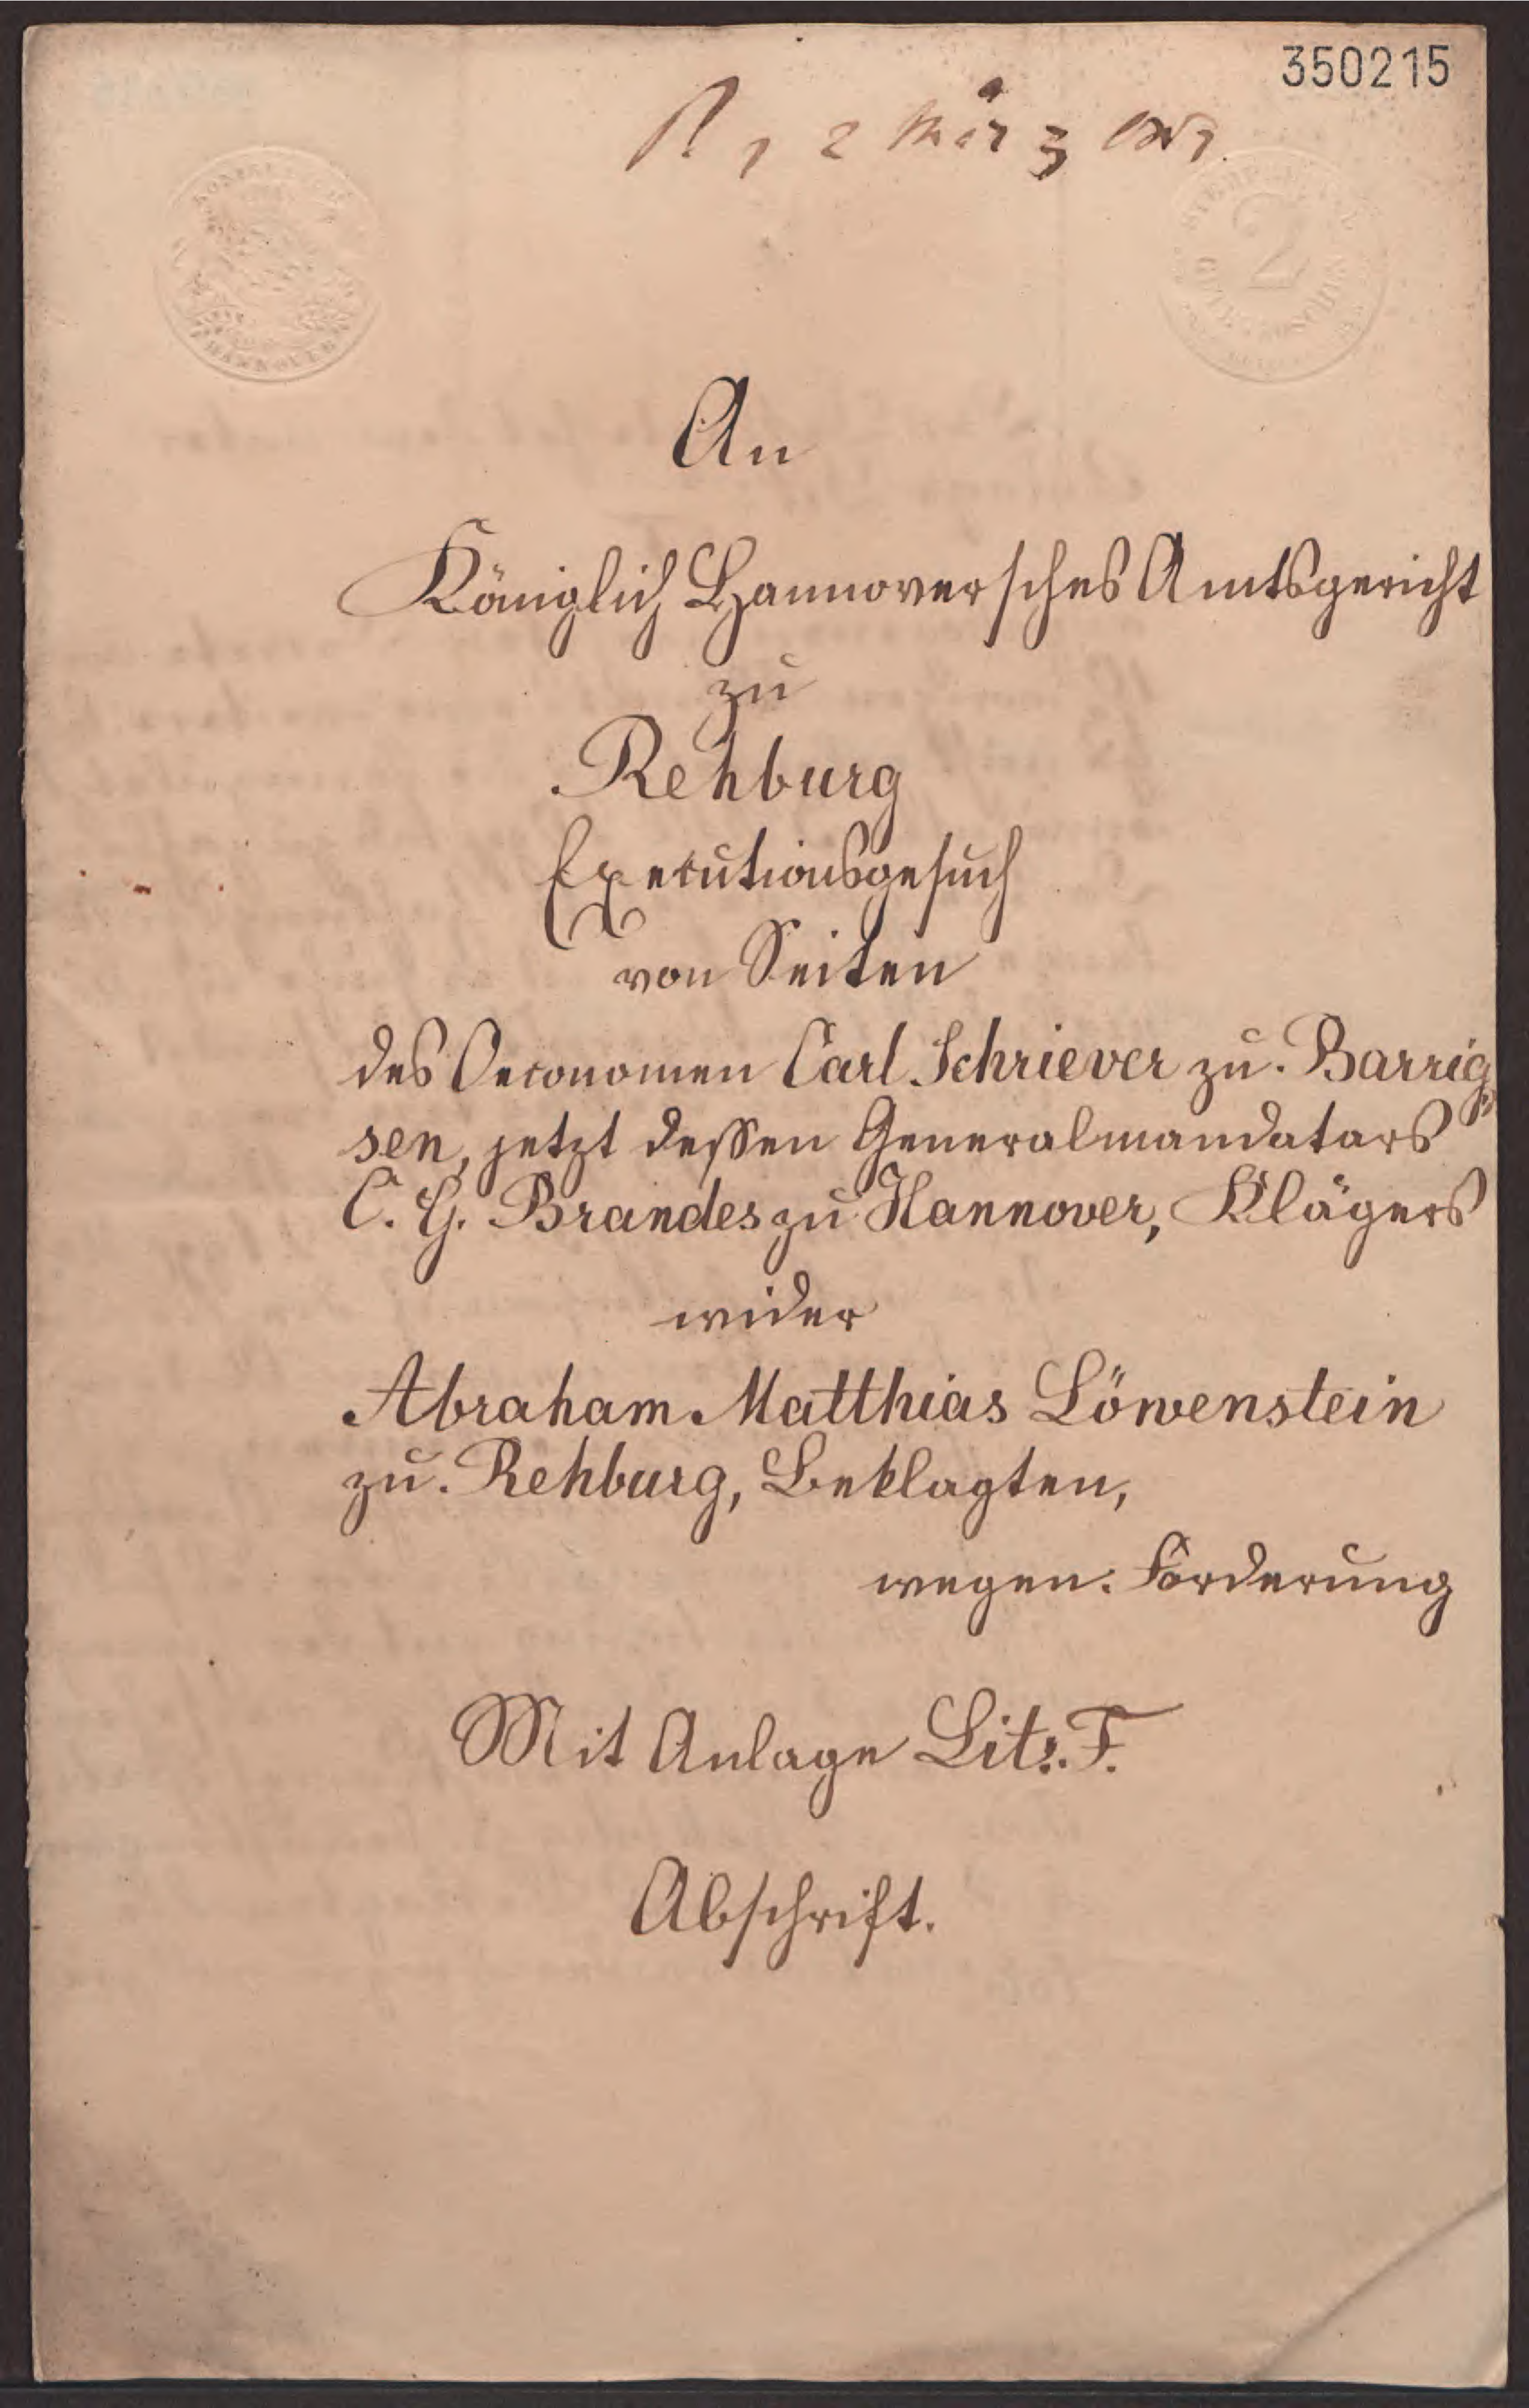 350215
2 März
2
HANNOVER
An
Königlich Hannoversches Amtsgericht
zu
Rehburg
Executionsgesuch
von Seiten
des Oeconomen Carl Schriever zu Barrig=
sen, jetzt dessen Generalmandatars
C. G. Brandes zu Hannover, Klägers
wider
Abraham Matthias Löwenstein
zu Rehburg, Beklagten,
wegen Forderung
Mit Anlage Litr. F.
Abschrift.